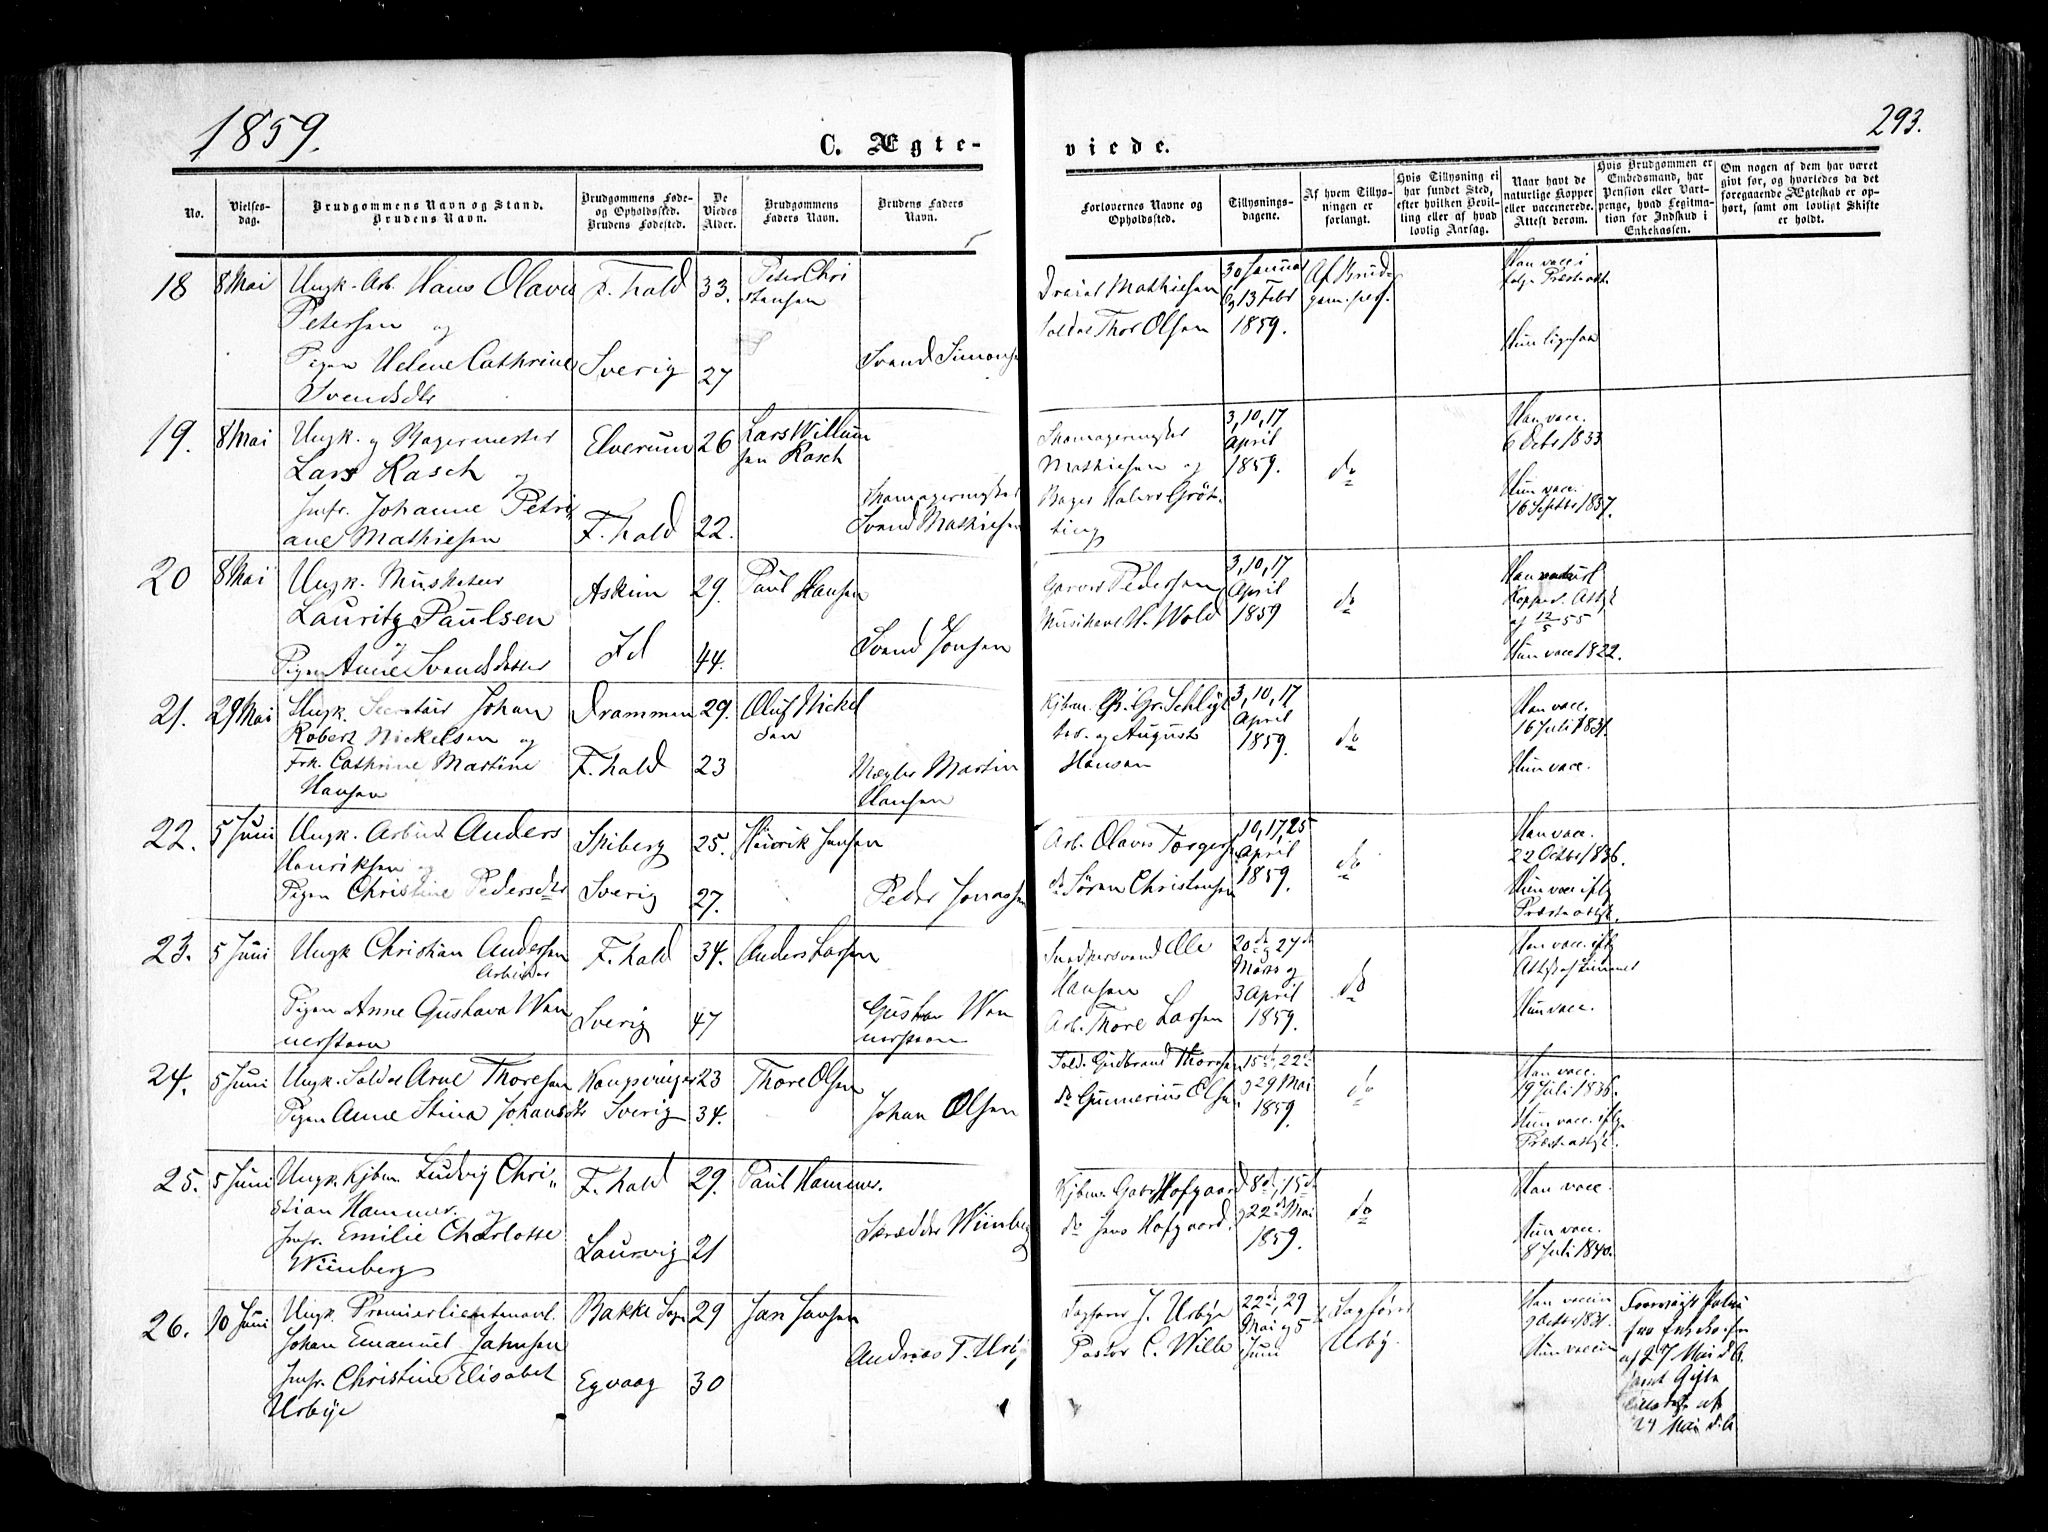 1859.
293.
C. Ægte-
viede.
No.
Vielses-
dag.
Brudgommens Navn og Stand.
Brudens Navn.
Brudgommens Føde-
og Opholdssted.
Brudens Fødested.
De
Viedes
Alder.
Brudgommens
Faders Navn.
Brudens Faders
Navn.
Forlovernes Navne og
Opholdssted.
Tillysnings-
dagene.
Af hvem Tillys-
ningen er
forlangt.
Hvis Tillysning ei
har fundet Sted,
efter hvilken Bevil-
ling eller af hvad
lovlig Aarsag.
Naar havt de
naturlige Kopper
eller vaccinerede.
Attest derom.
Hvis Brudgommen er
Embedsmand, har
Pension eller Vart-
penge, hvad Legitma-
tion for Indskud i
Enkekassen.
Om nogen af dem har været
gift før, og hvorledes da det
foregaaende Ægteskab er op-
hørt, samt om lovligt Skifte
er holdt.
18
8 Mai
Ungk. Arb. Hans Olaves
Petersen og
Pigen Helene Cathrine
Svendsdtr
F. hald
Sverig
33.
27
Peter Chri
stensen
Svend Simonsen
Mathiesen
Soldat Thor Olsen
30 Januar
og 13 Febr
1859.
Af Brud
gom. pers.
Han vacc. i
følge Præsteatt.
Hun ligesaa
19.
8 Mai
Ungk. og Bagermester
Lars Rasch og
Jmfr. Johanne Petri
ane Mathiesen
Elverum
F. hald
26
22.
Lars Willum
sen Rasch
Skomagermester
Svend Mathiesen
Skomagermester
Mathiesen og
Bager Halvor Grøt-
ting
3, 10, 17
April
1859.
do
Han vacc.
6 Octb 1833
Hun vacc.
16 Septbr 1837.
20
8 Mai
Ungk. Musketeer
Lauritz Paulsen
og
Pigen Anne Svendsdatter
Askim
Id
29.
44.
Paul Hansen
Svend Jonsen
Garver Pedersen
Musikant H. Wold
3, 10, 17
April
1859
do
Han naturl
Kopper. Attst
af 12/5 55
Hun vacc 1822.
21.
29 Mai
Ungk. Secretair Johan
Robert Nickelsen og
Frk. Cathrine Martine
Hansen
Drammen
F. hald
29.
23
Oluf Nickel
sen
Mægler Martin
Hansen
Kjbm. Gr. Schlyt
ter og August
Hansen
3, 10, 17
April
1859.
do
Han vacc.
16 Juli 1831.
Hun vacc.
22.
5 Juni
Ungk. Arbeid Anders
Henriksen og
Pigen Christine Pedersdtr
Spiberg
Sverig
25.
27.
Henrik Jensen
Peder Jonassen
Arb. Olaves Torgers
do Søren Christensen
10, 17, 25
April
1859.
do
Han vacc.
22 Octbr 1836.
Hun vacc iflg
Præsteattst.
23.
5 Juni
Ungk Christian Andersen
Arbeider
Pigen Anne Gustava Wen
nerstrøm
F. hald
Sverig
34.
47
Anders Larsen
Gustav Wen
nerstrøm
Ole
Hansen
Arb. Thore Larsen
20de og 27de
Marts og
3 April
1859.
do
Han vacc. iflg
Hun vacc.
24.
5 Juni
Ungk. Soldat Arne Thoresen
Pigen Anne Stina Johansdtr
Kongsvinger
Sverig
23
34.
Thore Olsen
Johan Olsen
Sold. Gudbrand Thoresen
do Gunnerius Olsen
15de, 22de
og 29 Mai
1859.
do
Han vacc.
19 Juli 1836.
Hun vacc. iflg.
Præsteattst.
25.
5 Juni
Ungk. Kjbm. Ludvig Chri-
stian Hammer. og
Jmfr. Emilie Charlotte
Wiinberg
F. hald
Laurvig
29.
21
Paul Hammer.
Skrædder Wiinberg
Kjbm. Gabr Hofgaard
do Jens Hofgaard.
8de, 15de
og 22de Mai
1859.
do
Han vacc.
Hun vacc.
8 Juli 1840.
26.
10 Juni
Ungk. Premierlieutenant.
Johan Emanuel Jahnsen
Jmfr. Christine Elisabet
Urbye
Bakke Sogn
Egvaag
29
30
Jan Jansen
Andreas T. Urby
Sagfører J. Urbye
Pastor C. Wille
22de, 29
Mai og 5
Juni
Sagfører
Urby.
Han vaccin
9 Octbr 1831.
Hun vaccin
fra Enkekassen
af 27 Mai d.A.
24 Mai d.A.